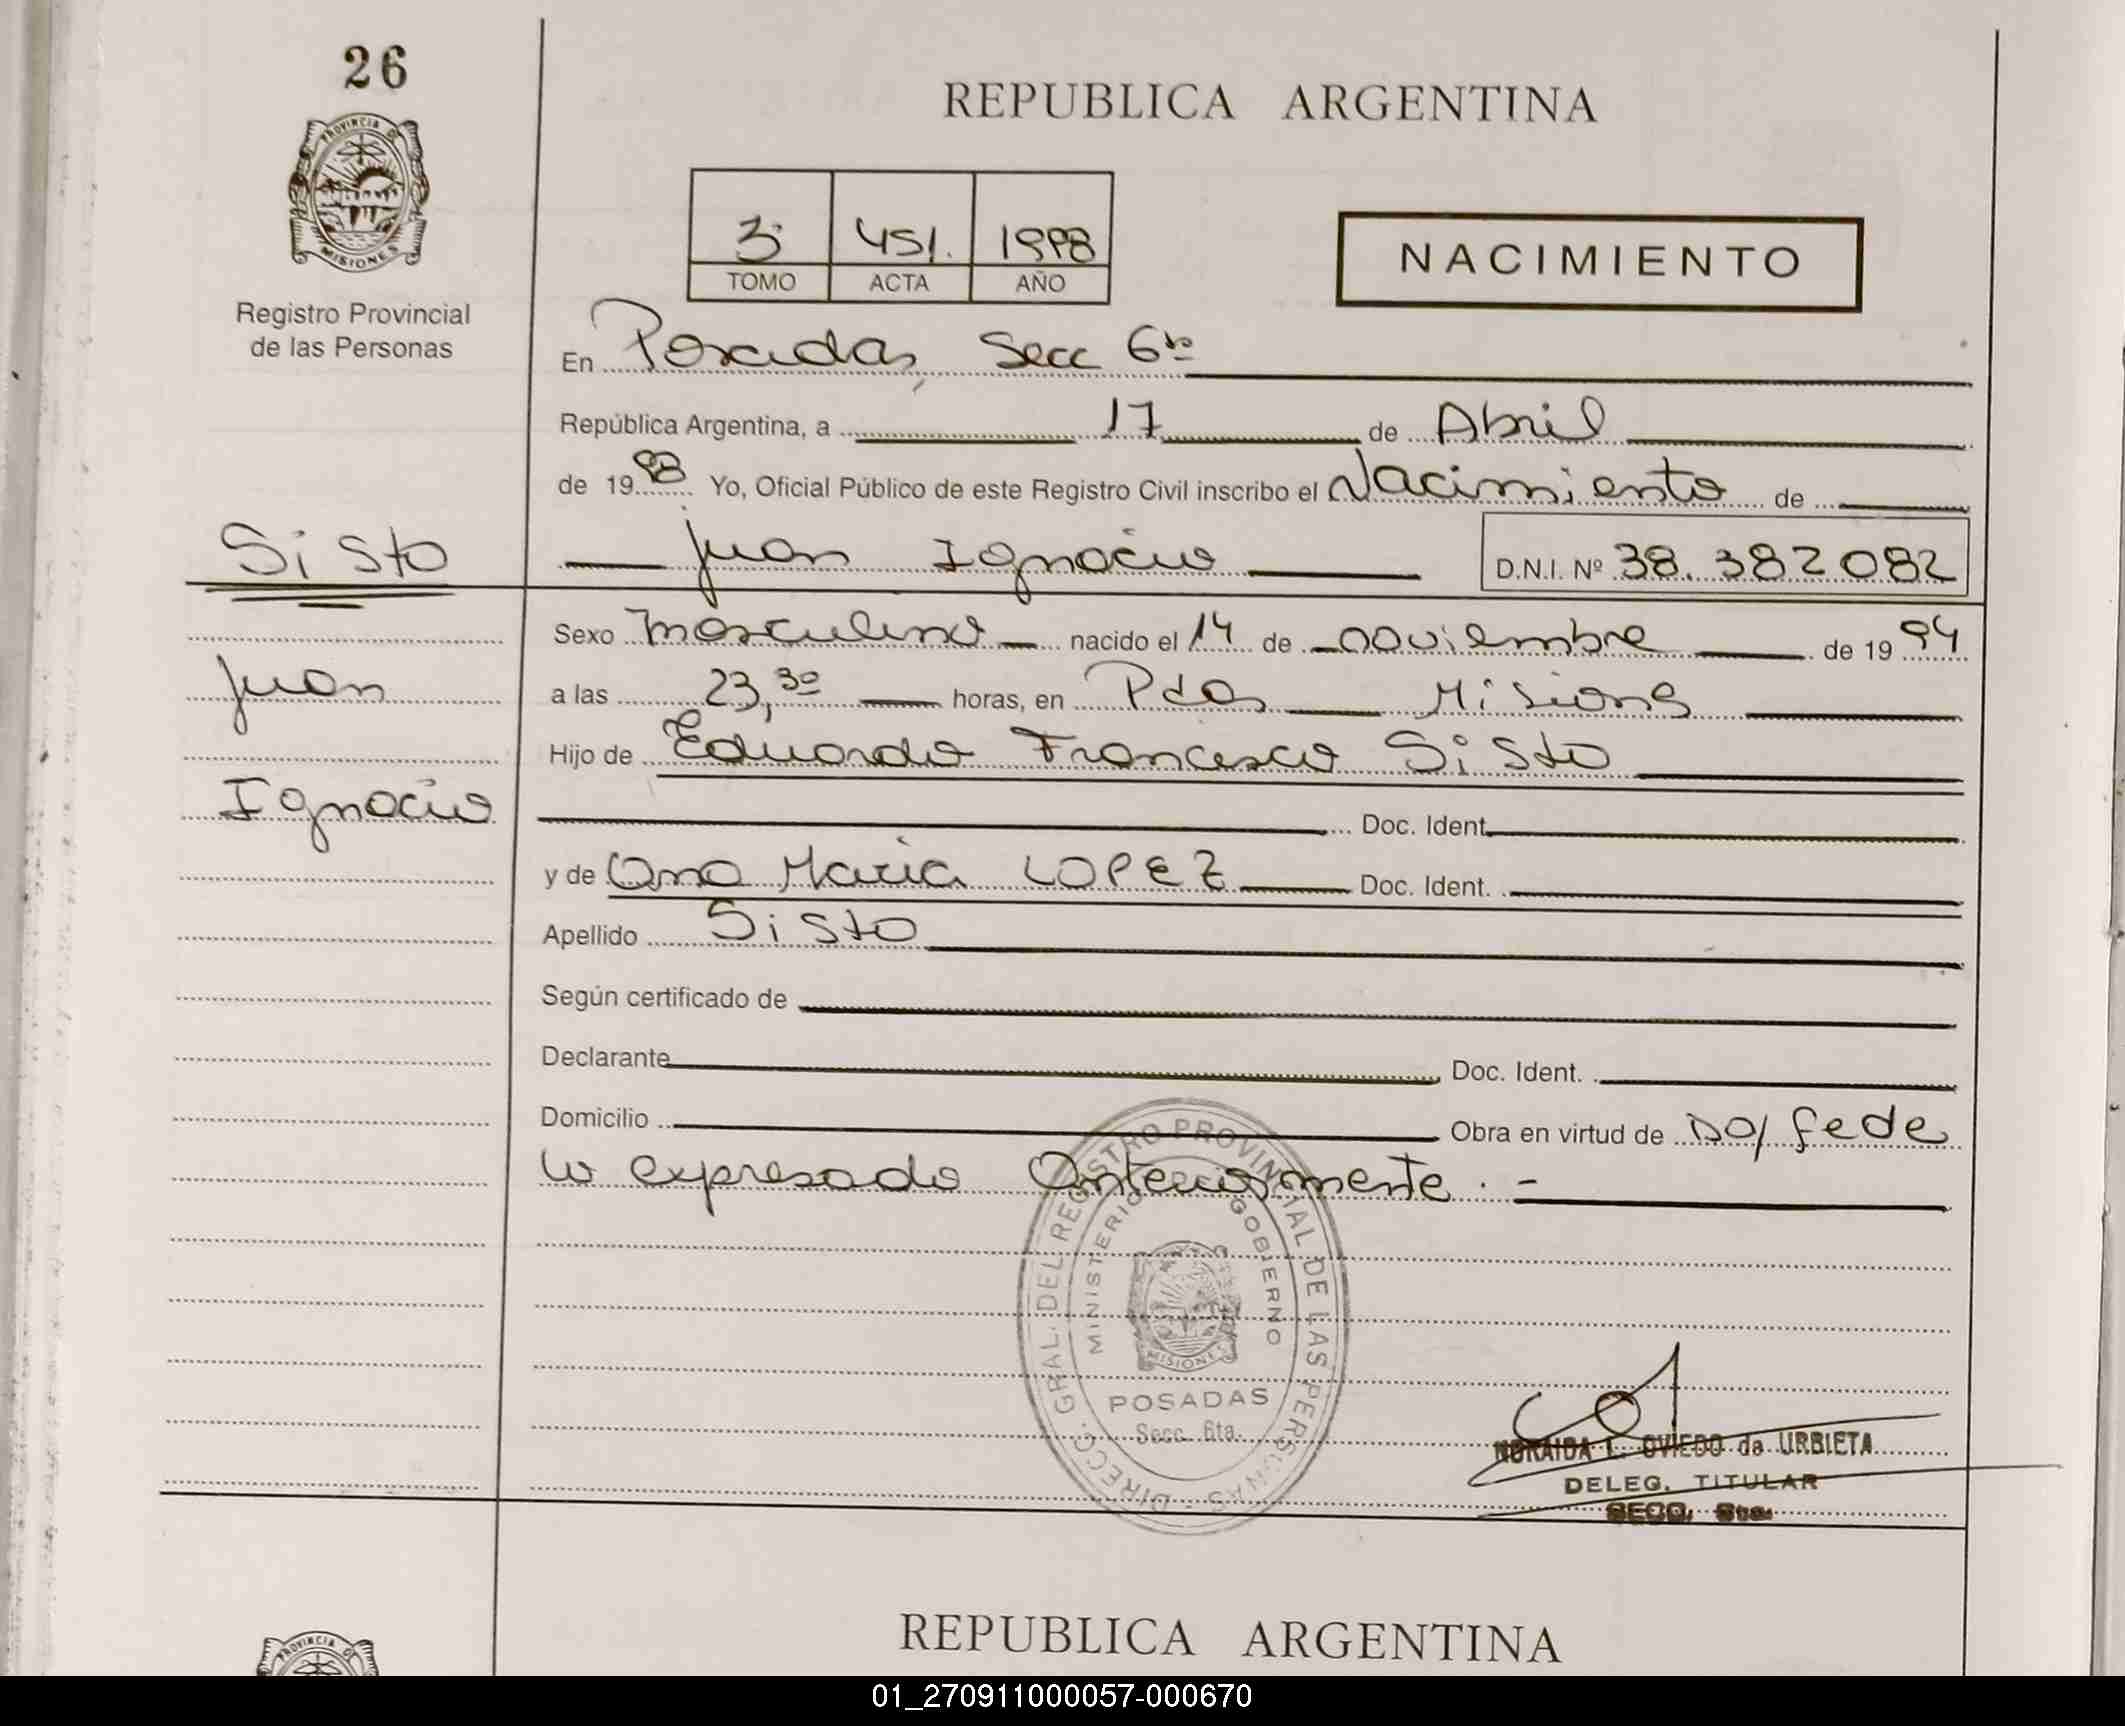 26
REPUBLICA ARGENTINA
PROVINCIA DE
MISIONES
3º 451. 1998
TOMO ACTA AÑO
NACIMIENTO
Registro Provincial
de las Personas
En Posadas, Secc 6ta
República Argentina, a 17 de Abril
de 1998 Yo, Oficial Público de este Registro Civil inscribo el Nacimiento de
Sisto
Juan Ignacio D.N.I. Nº 38.382082
Sexo masculino nacido el 14 de noviembre de 1994
Juan
a las 23,30 horas, en Pdas Misiones
Hijo de Eduardo Francesco Sisto
Ignacio
Doc. Ident.
y de Ana Maria LOPEZ Doc. Ident.
Apellido Sisto
Según certificado de
Declarante Doc. Ident.
Domicilio Obra en virtud de DO/ fede
lo expresado Anteriormente . -
DIRECC. GRAL. DEL REGISTRO PROVINCIAL DE LAS PERSONAS -
MINISTERIO GOBIERNO
MISIONES
POSADAS
Secc. 6ta.
NORAIDA L. OVIEDO de URBIETA
DELEG. TITULAR
SECC. 6ta.
REPUBLICA ARGENTINA
PROVINCIA DE
01_270911000057-000670